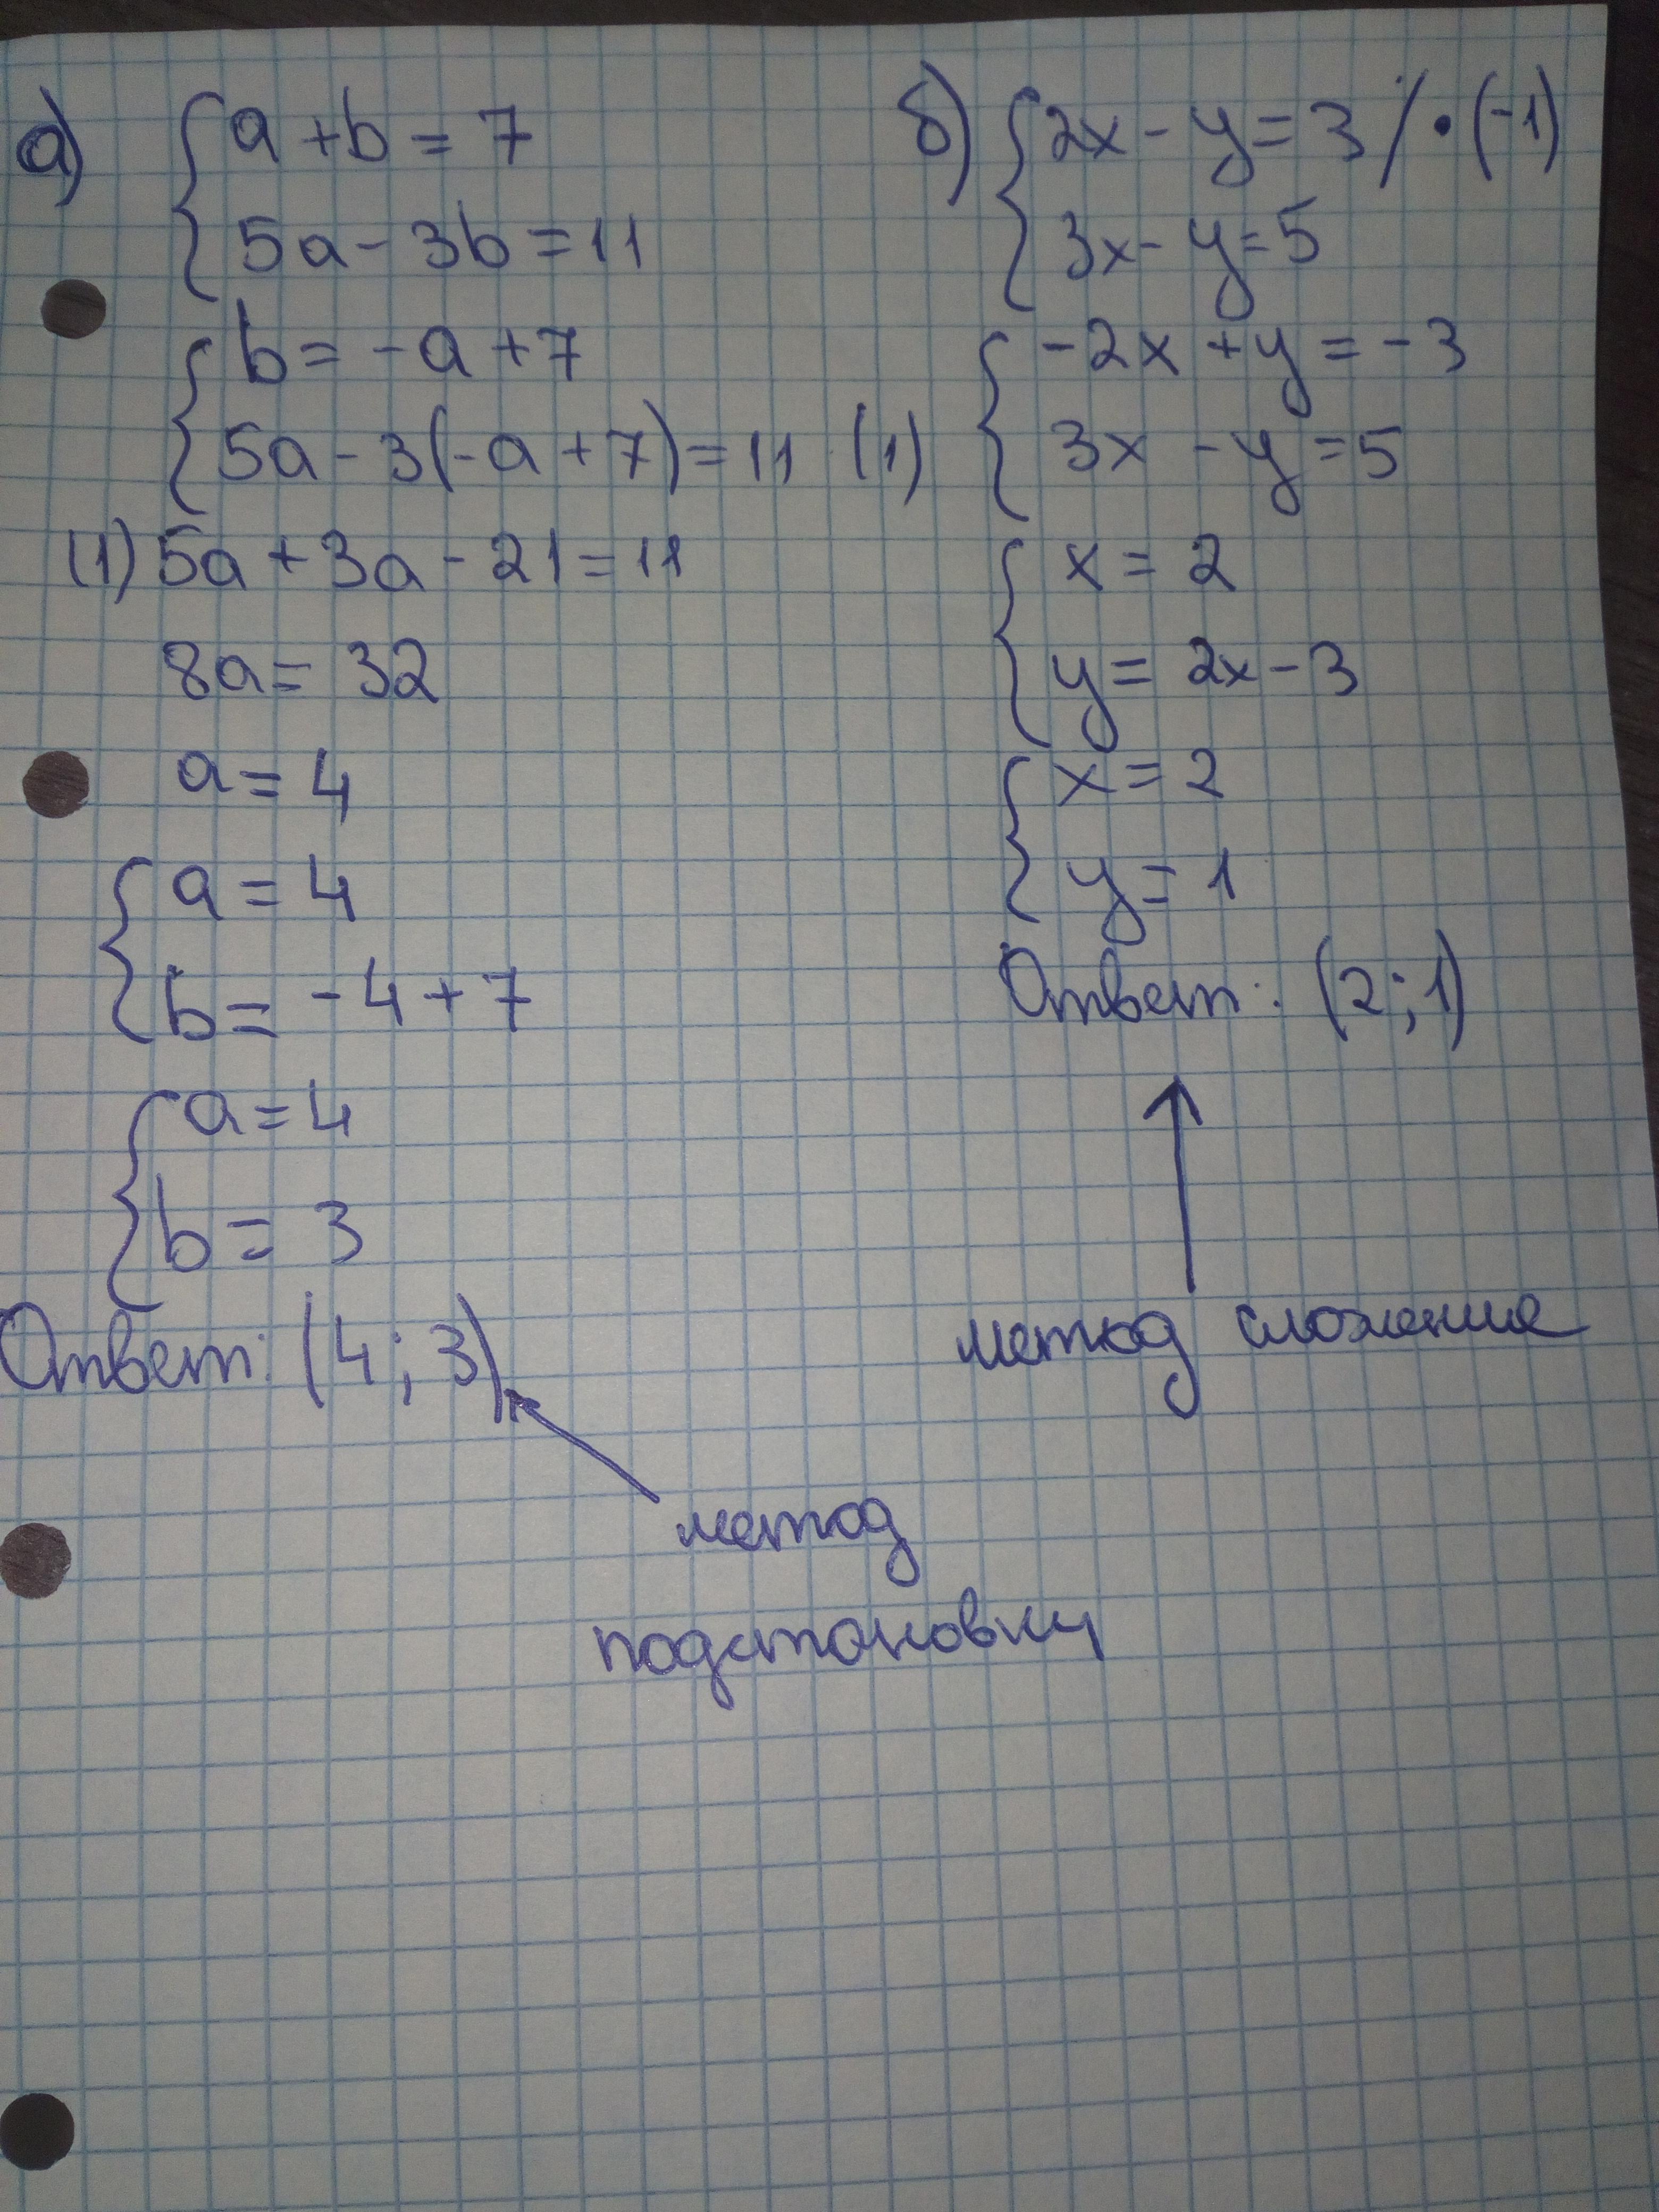 а) { a + b = 7
5a - 3b = 11
{ b = -a + 7
5a - 3(-a + 7) = 11 (1)
(1) 5a + 3a - 21 = 11
8a = 32
a = 4
{ a = 4
b = -4 + 7
{ a = 4
b = 3
Ответ: (4; 3)
метод
подстановки
б) { 2x - y = 3 / • (-1)
3x - y = 5
{ -2x + y = -3
3x - y = 5
{ x = 2
y = 2x - 3
{ x = 2
y = 1
Ответ: (2; 1)
метод сложение